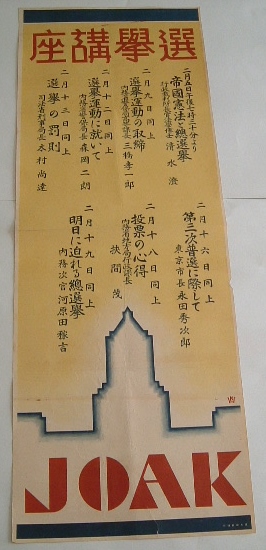 選擧講座
二月五日午後七時三十分より
帝國憲法と總選擧
清水澄
二月九日同上
選擧運動の取締
三橋孝一郎
二月十二日同上
選擧運動に就いて
森岡二朗
二月十三日同上
選擧の罰則
司法省刑事局長 木村尚達
二月十六日同上
第三次普選に際して
東京市長 永田秀次郎
二月十八日同上
投票の心得
挾間茂
二月十九日同上
明日に迫れる總選擧
内務次官 河原田稼吉
JOAK